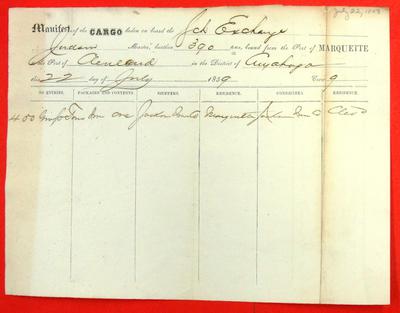 July 22, 1859
Manifest of the CARGO laden on board the Sch Exchange
Master, burthen 390 tons, bound from the Port of MARQUETTE
the Port of Cleveland in the District of Cuyahoga
this 22 day of July 1859
NO. ENTRIES. PACKAGES AND CONTENTS. SHIPPERS. RESIDENCE. CONSIGNEES. RESIDENCE.
450 Tons Iron ore Jackson Marquette Jackson Iron Co Clevd